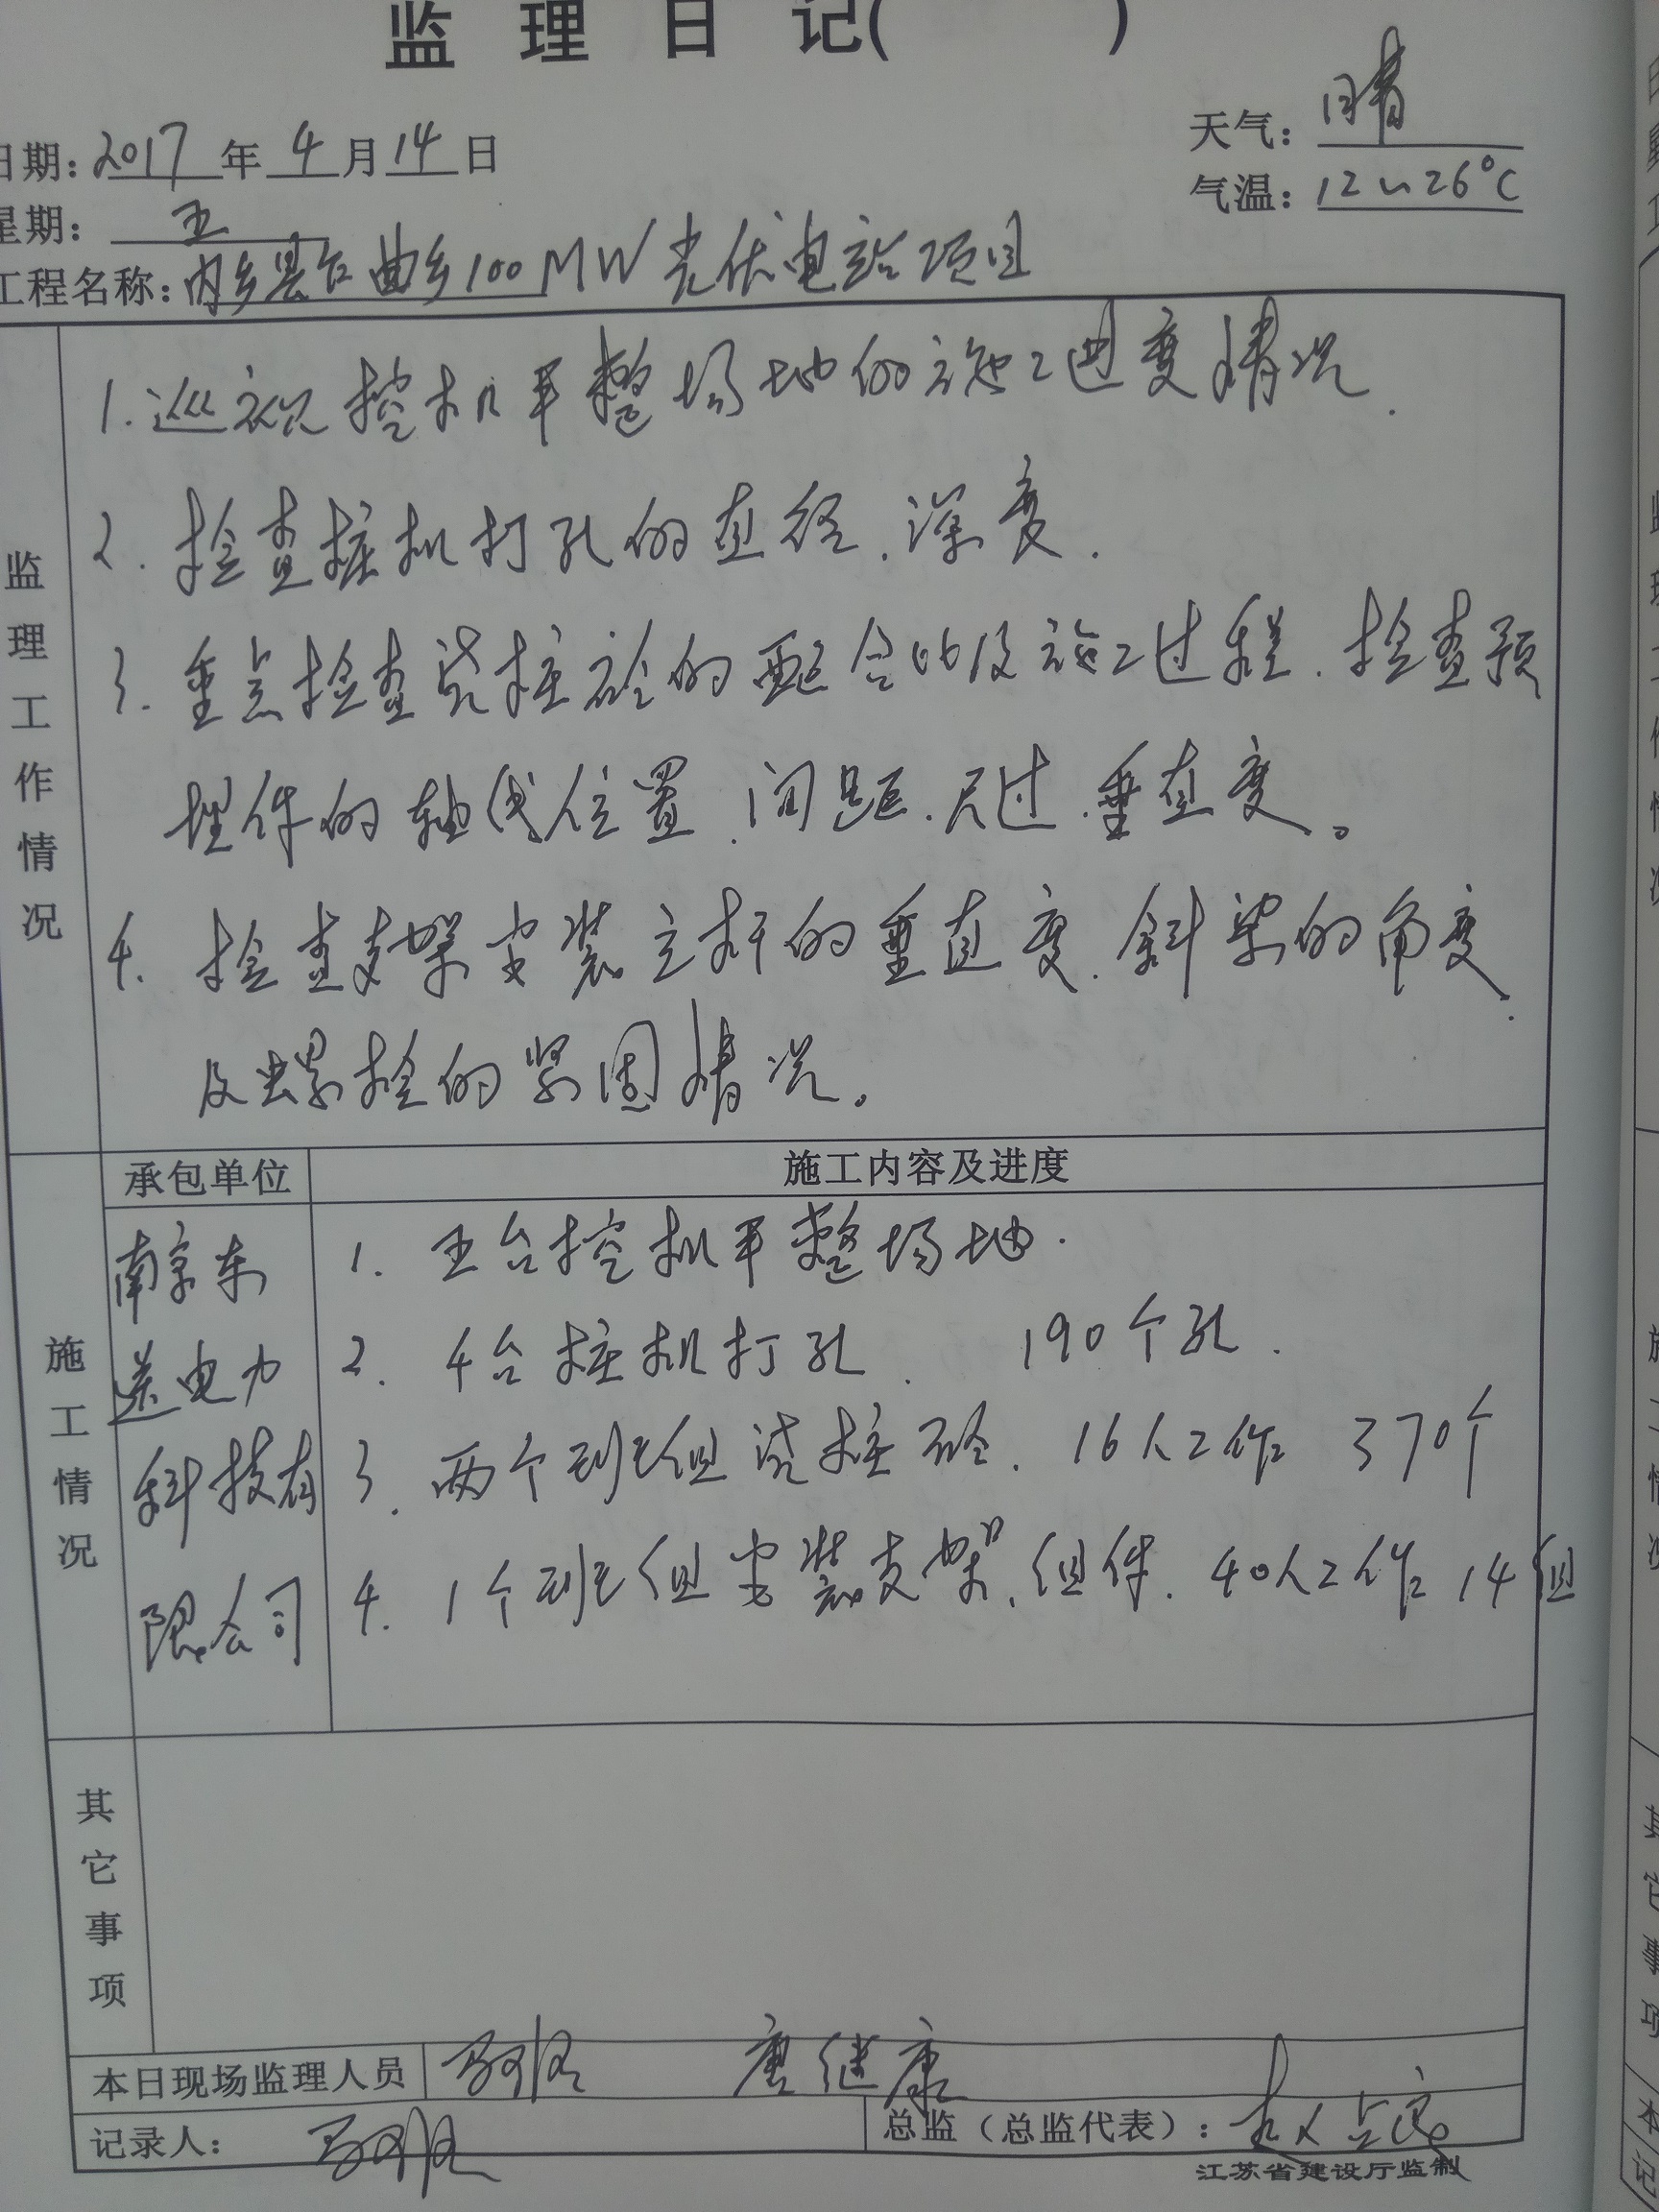 监 理 日 记( )
日期: 2017 年 4 月 14 日
天气: 晴
星期: 五
气温: 12~26℃
工程名称: 内乡县 曲乡100MW光伏电站项目
监理工作情况
1.巡视挖机平整场地的施工进度情况.
2. 检查桩机打孔的直径、深度.
3. 重点检查浇桩砼的配合比及施工过程、检查预
埋件的轴线位置、间距、尺寸、垂直度。
4. 检查支架安装立杆的垂直度、斜梁的角度、
及螺栓的紧固情况。
承包单位 施工内容及进度
施工情况
南京东
送电力
科技有
限公司
1. 五台挖机平整场地.
2. 4台桩机打孔、 190个孔.
3. 两个班组浇桩砼、16人工作 370个
4. 1个班组安装支架、组件、40人工作 14组
其它事项
本日现场监理人员 唐继康
记录人:
总监(总监代表): 赵
江苏省建设厅监制